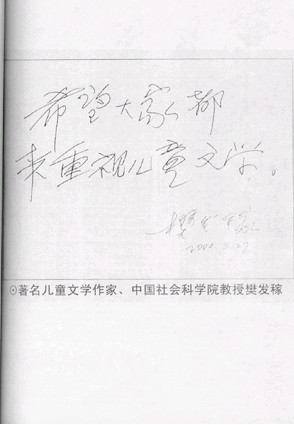 希望大家都
来重视儿童文学。
樊发稼
2000.5.22
⊙著名儿童文学作家、中国社会科学院教授樊发稼